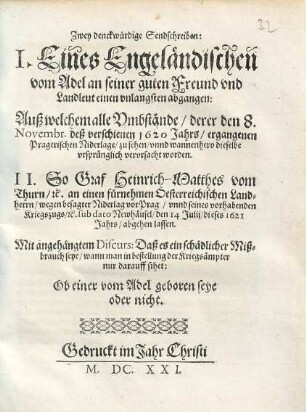 32
Zwey denckwürdige Sendschreiben:
I. Eines Engeländischen
vom Adel an seiner guten Freund vnd
Landleut einen vnlangsten abgangen:
Auß welchem alle Vmbstände / derer den 8.
Novembr. deß verschienen 1620 Jahrs / ergangenen
Pragerischen Niderlage / zu sehen / vnnd wannenhero dieselbe
vrsprünglich verorsacht worden.
II. So Graf Heinrich-Matthes vom
Thurn / ꝛc. an einen fürnehmen Oesterreichischen Land-
herrn / wegen besagter Niderlag vor Prag / vnnd seines vorhabenden
Kriegszugs / ꝛc. sub dato Newhäusel / den 14 Julii / dieses 1621
Jahrs / abgehen lassen.
Mit angehängtem Discurs: Daß es ein schädlicher Miß-
brauch seye / wann man in bestellung der Kriegsämpter
nur darauff sihet:
Ob einer vom Adel geboren seye
oder nicht.
Gedruckt im Jahr Christi
M. DC. XXI.